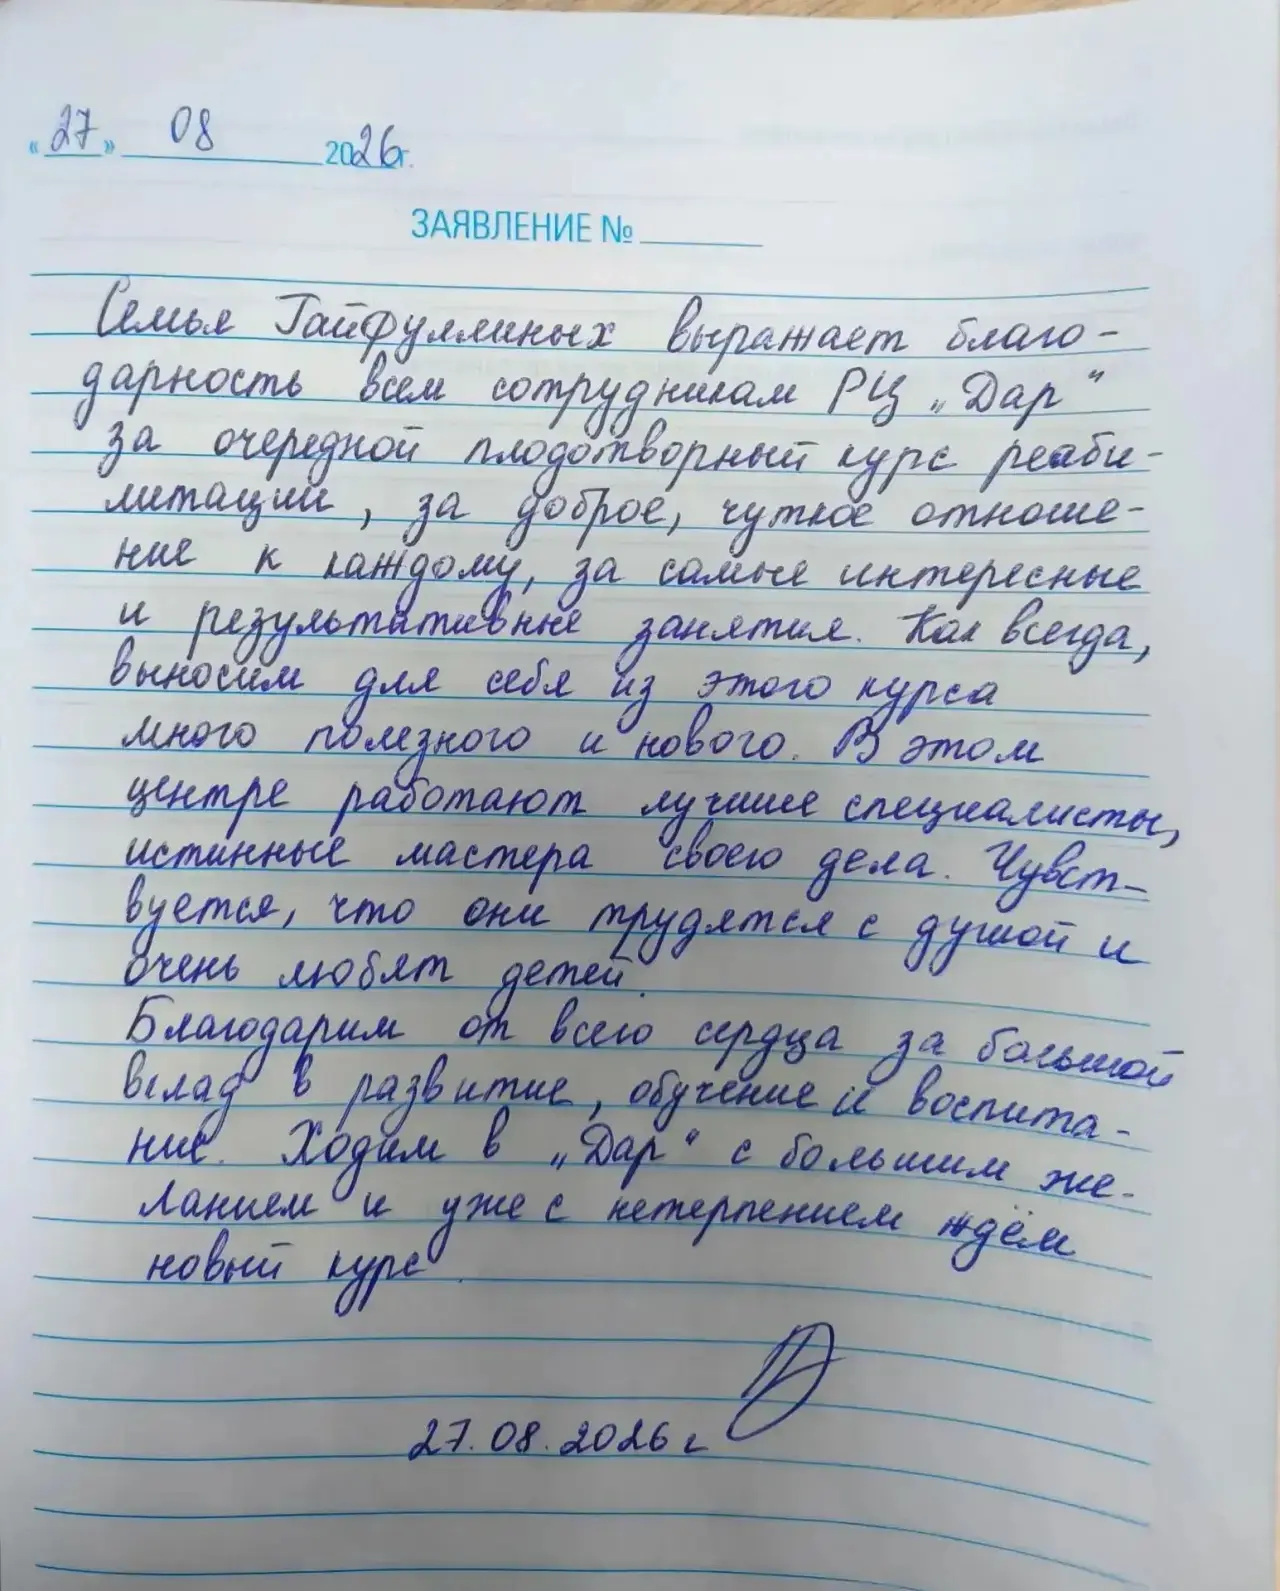 «27» 08 2026г.
ЗАЯВЛЕНИЕ №
Семья Гайфуллиных выражает благо-
дарность всем сотрудникам РЦ „Дар“
за очередной плодотворный курс реаби-
литации, за доброе, чуткое отноше-
ние к каждому, за самые интересные
и результативные занятия. Как всегда,
выносим для себя из этого курса
много полезного и нового. В этом
центре работают лучшие специалисты,
истинные мастера своего дела. Чувст-
вуется, что они трудятся с душой и
очень любят детей.
Благодарим от всего сердца за большой
вклад в развитие, обучение и воспита-
ние. Ходим в „Дар“ с большим же-
ланием и уже с нетерпением ждём
новый курс.
27.08.2026 г